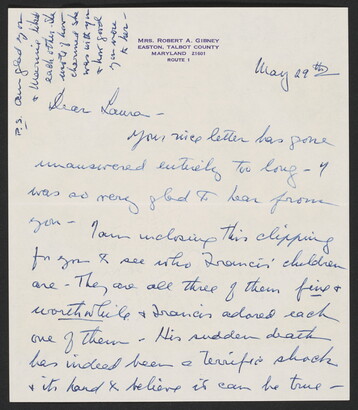 MRS. ROBERT A. GIBNEY
EASTON, TALBOT COUNTY
MARYLAND 21601
ROUTE 1
May 29th
Dear Laura –
Your nice letter has gone
unanswered entirely too long – I
was so very glad to hear from
you –
I am inclosing this clipping
for you to see who Francis' children
are – They are all three of them fine &
worthwhile & Francis adored each
one of them – His sudden death
has indeed been a terrific shock
& its hard to believe it can be true –
P.S. Am glad you
& Mannie liked
each other. She
wrote of how
charmed she
was with you
& how good
you were
to her –